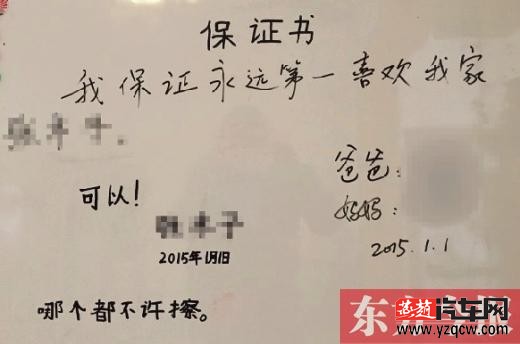 保证书
我保证永远第一喜欢我家
爸爸：
可以！
妈妈：
2015.1.1
2015年1月1日
哪个都不许擦。
东
报
燕赵汽车网
www.yzqcw.com